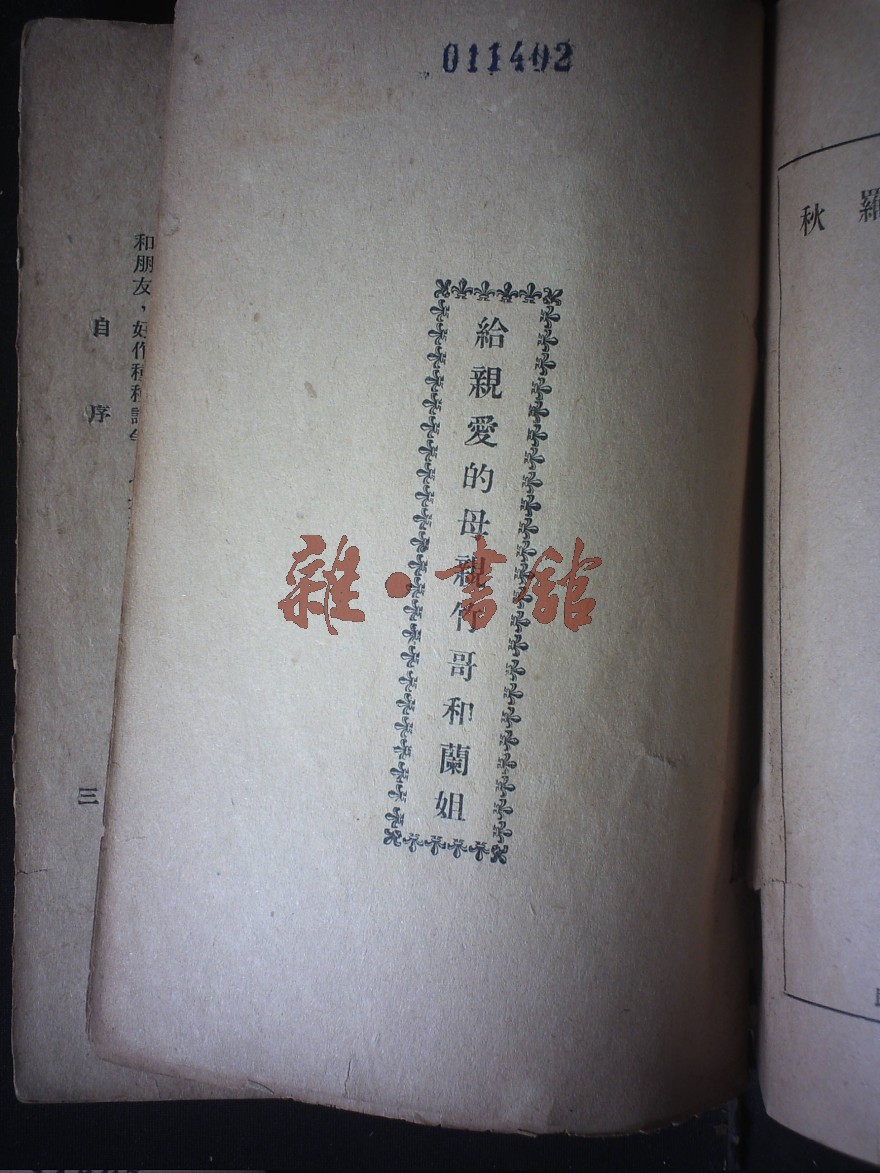 011402
羅
秋
給親愛的母親竹哥和蘭姐
雜·書館
和朋友，好作種種
自序
三